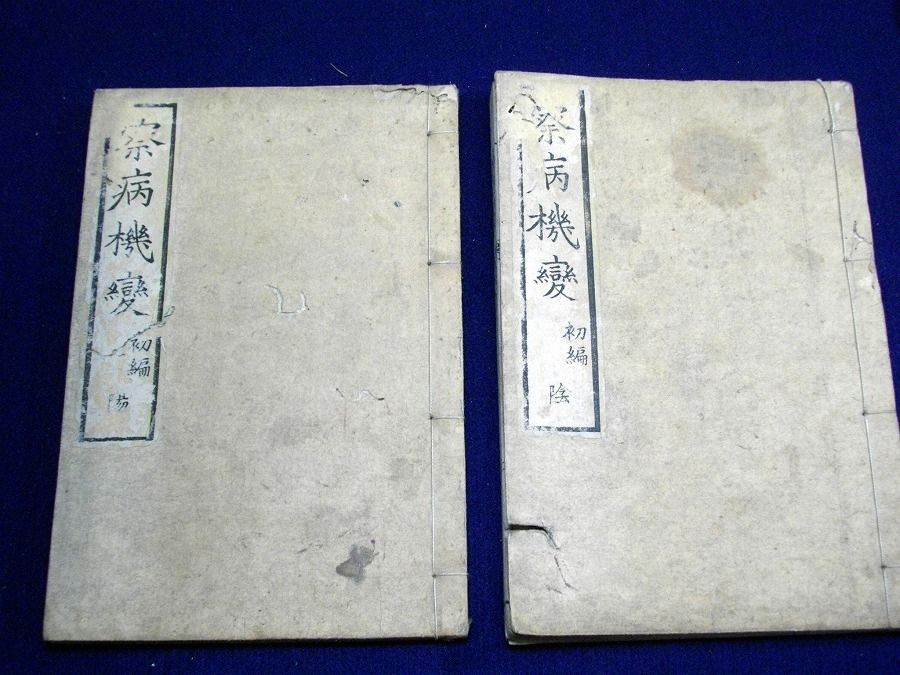 察病機變
初編
陽
察病機變
初編
陰